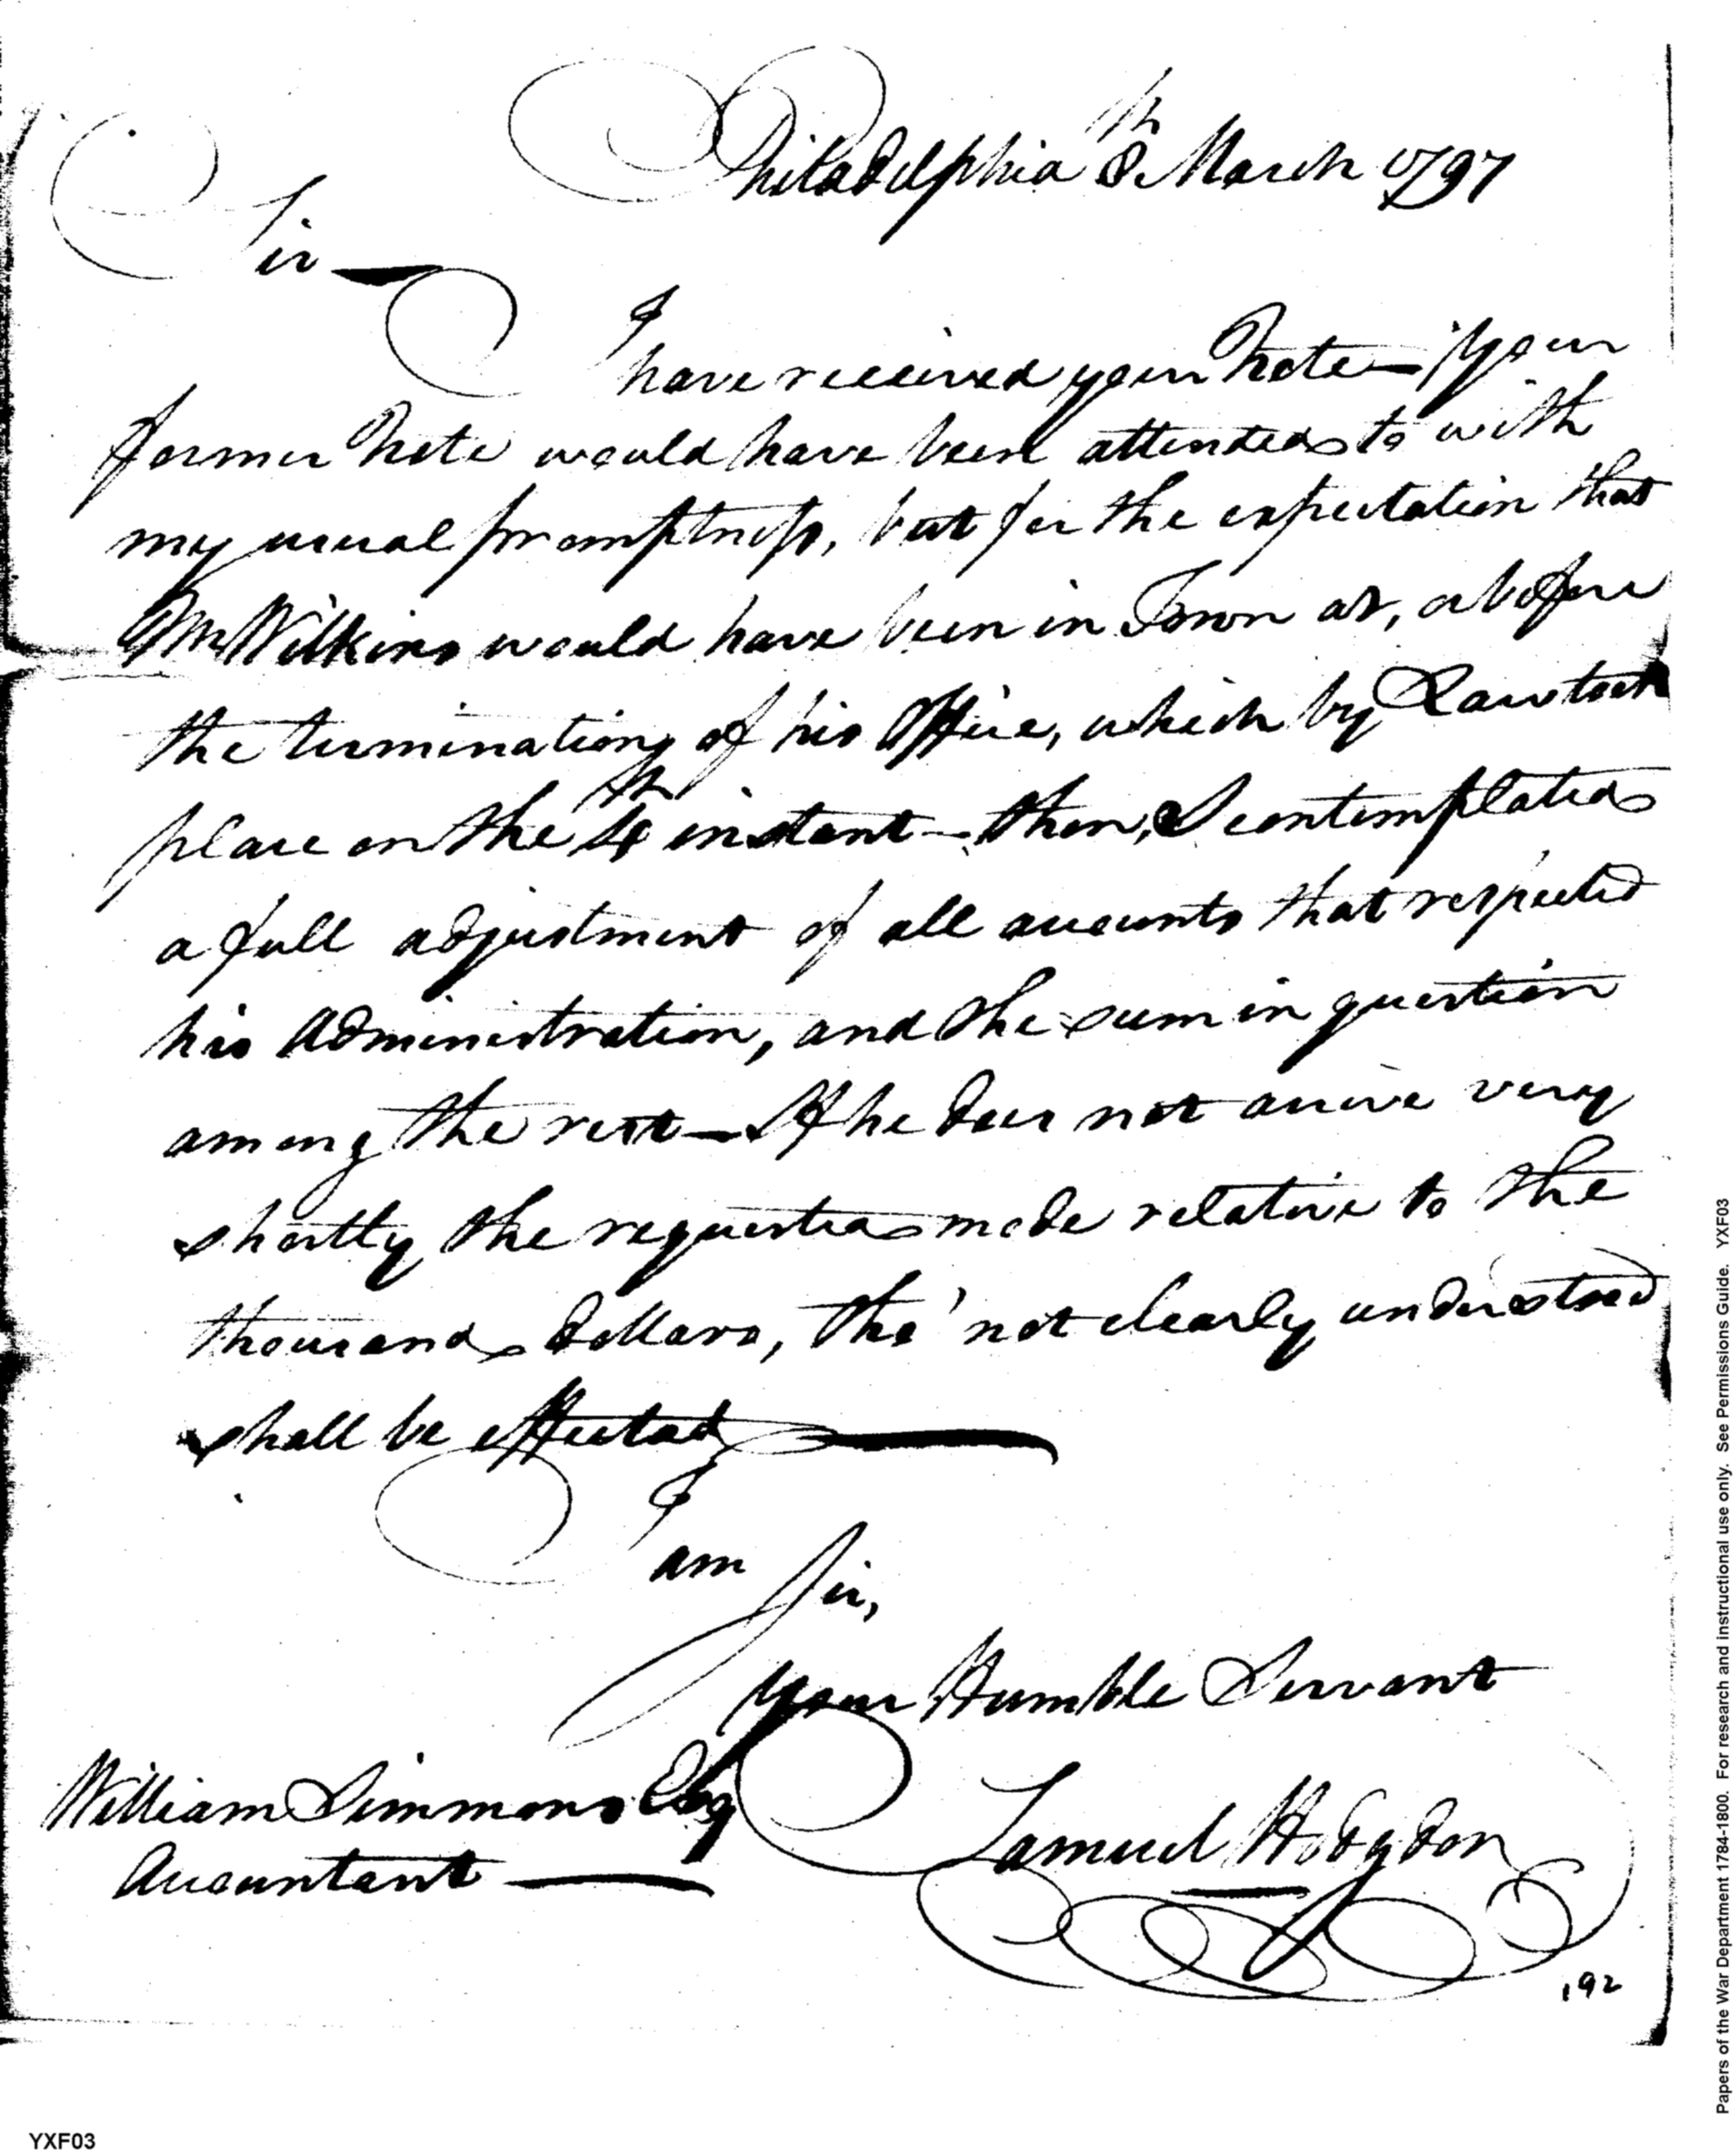 Philadelphia 8th March 1797
Sir
I have received your Note — Your
former Note would have been attended to with
my usual promptness, but for the expectation that
Mr Wilkins would have been in Town at, or before
the termination of his Office, which by Law took
place on the 4th instant — then, I contemplated
a full adjustment of all accounts that respected
his Administration, and the sum in question
among the rest — If he does not arrive very
shortly the requested made relative to the
thousand dollars, tho' not clearly understood
shall be effected
I am Sir,
Your Humble Servant
William Simmons Esq
Accountant
Samuel Hodgdon
192
YXF03
Papers of the War Department 1784-1800. For research and instructional use only. See Permissions Guide. YXF03